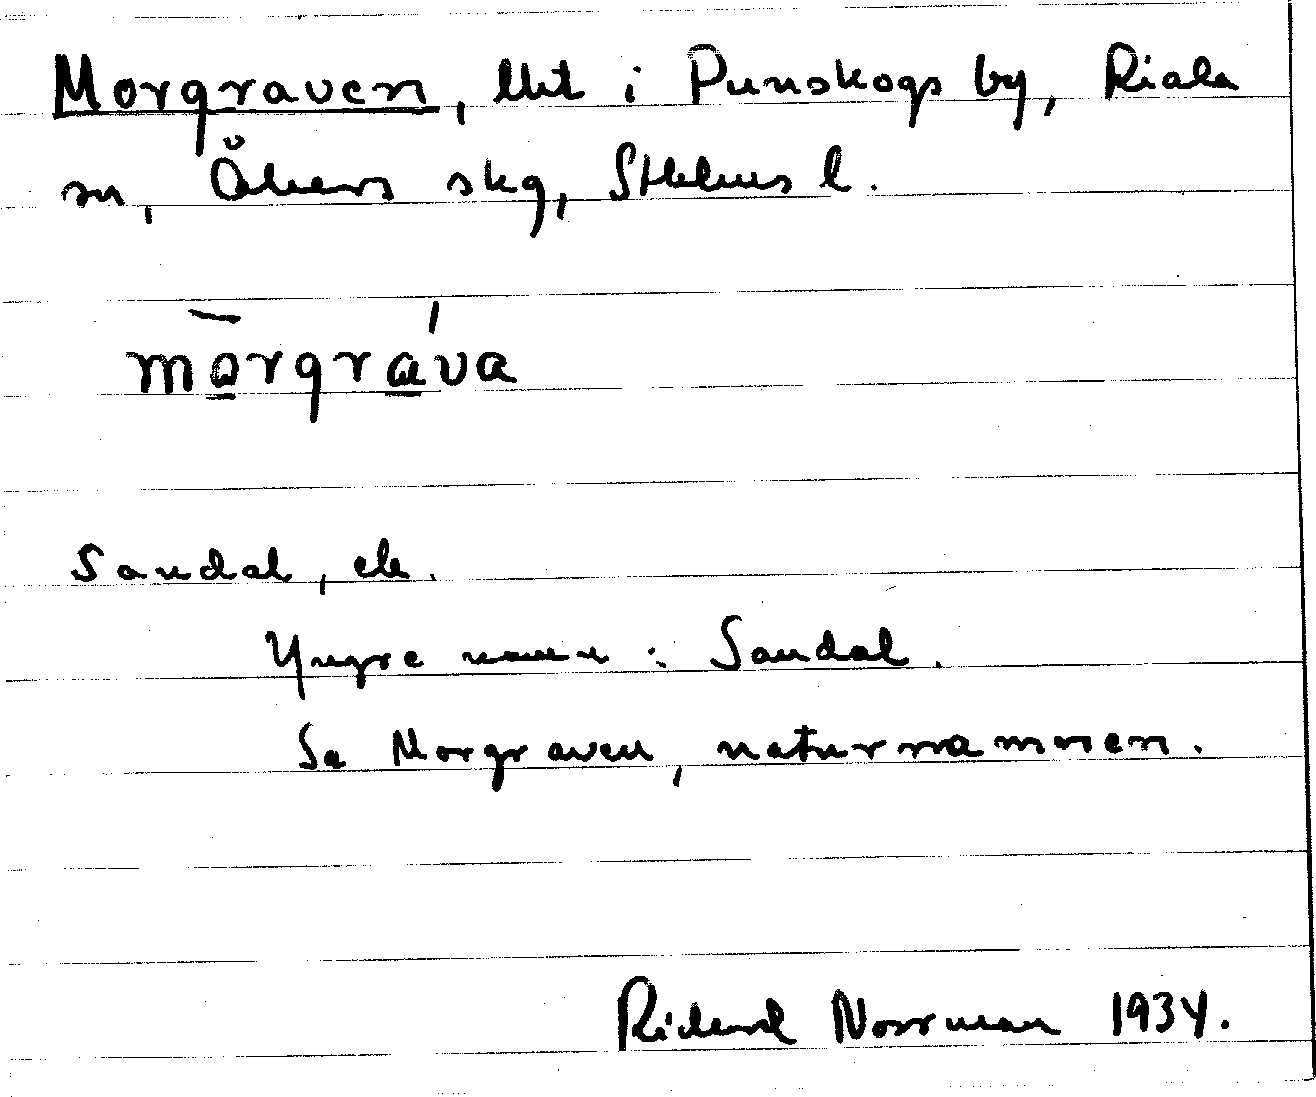 Morgraven, lht i Punskogs by, Riala
sn, Åkers skg, Sthlms l.
mo̱rgra̱va
Sandal, ek.
Yngre namn: Sandal.
Se Morgraven, naturnamnen.
Richard Norrman 1934.